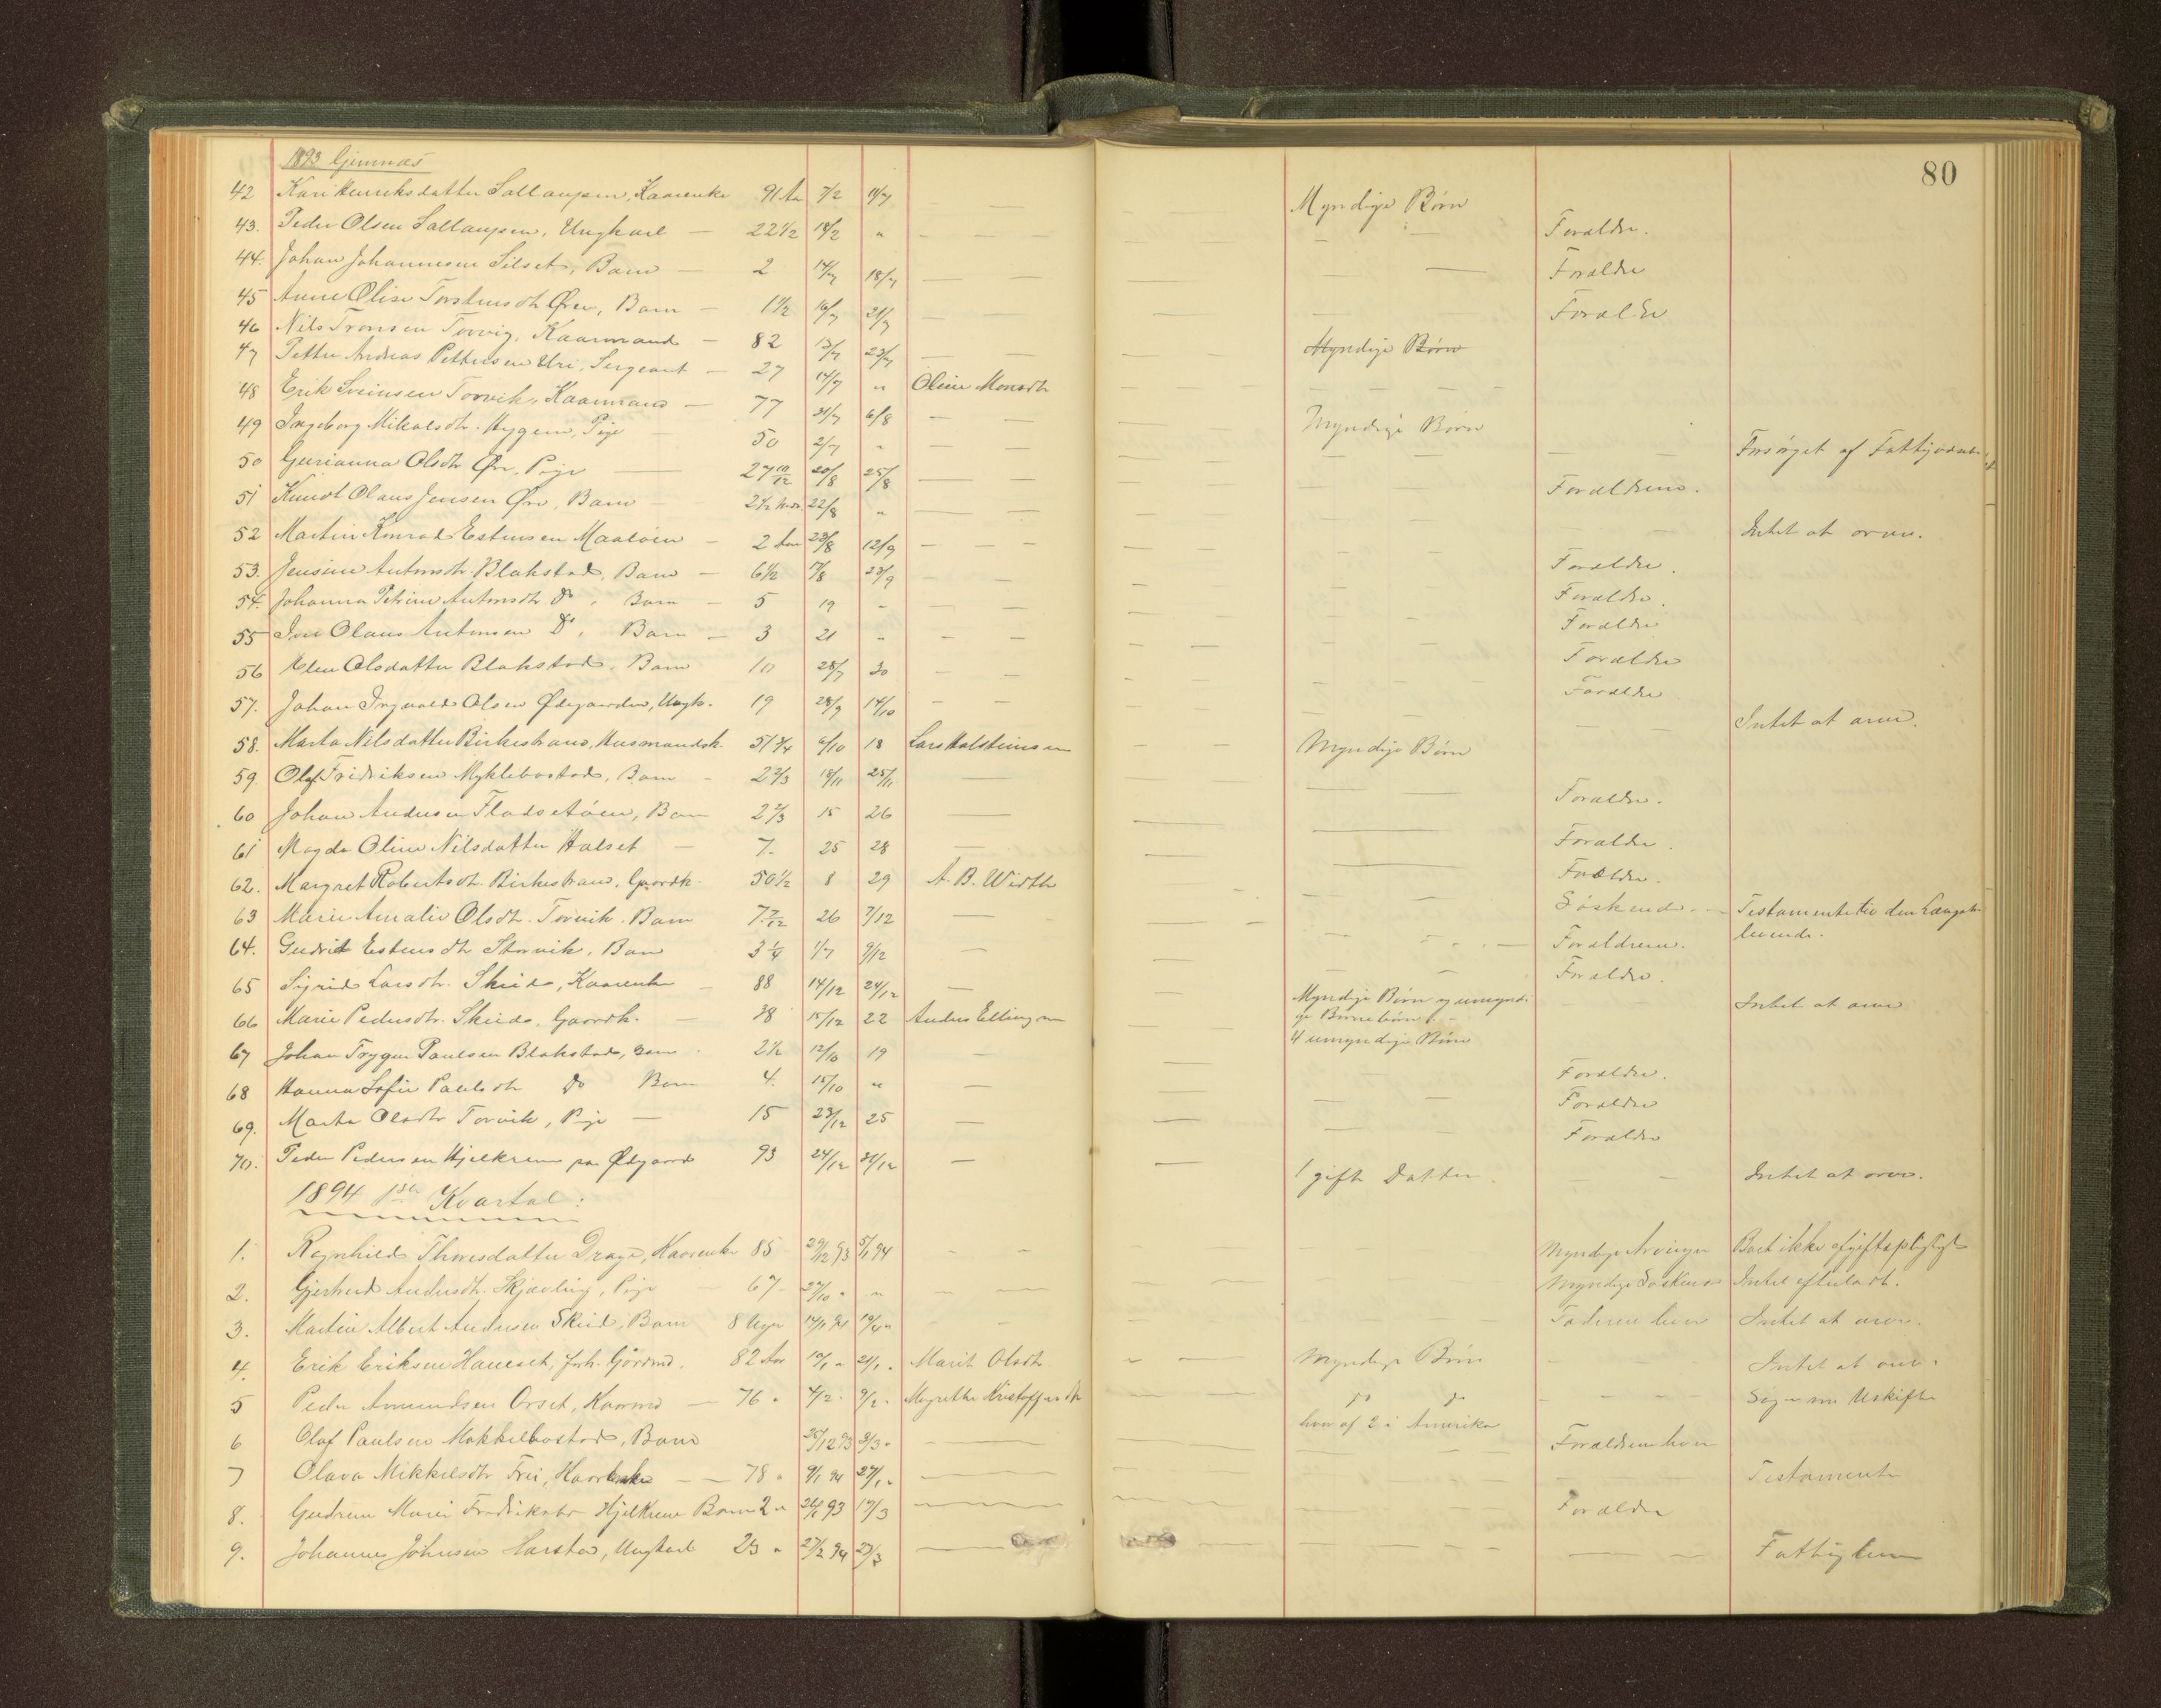 80
1893 Gimnæs
42 Kari Henriksdatter Sollaugsen, Kaarenke 91 Aar 7/2 11/7 Myndige Børn
43. Peder Olsen Sollaugsen, Ungkarl — 22 1/2 18/2 " Forældre.
44. Johan Johannesen Silset, Barn — 2 14/7 18/7 Forældre
45 Anne Oline Torstensdtr Øre, Barn — 1 1/2 16/7 21/7 Forældre
46 Nils Tronsen Torvig, Kaarmand — 82 13/7 23/7 Myndige Børn
47 Petter Andreas Pettersen Uri, Sergeant — 27 14/7 " Oline Monsdtr
48 Erik Sveinsen Torvik, Kaarmand — 77 31/7 6/8 Myndige Børn
49 Ingeborg Mikalsdtr. Hygen, Pige 50 2/7 " Forsørget af Fattigvæsenet
50 Gurianna Olsdtr Øre, Pige — 27 10/12 20/8 25/8 Forældrene.
51 Knudt Olaus Jensen Øre, Barn — 2 1/2 22/8 " Intet at arve.
52 Martin Konrad Estensen Maaløen — 2 Aar 23/8 12/9 Forældre.
53. Jensine Antonsdtr. Blakstad, Barn — 6 1/2 17/8 23/9 Forældre.
54. Johanna Petrine Antonsdtr Do, Barn — 5 19 " Forældre
55 Iver Olaus Antonsen Do, Barn — 3 21 " Forældre
56 Elen Olsdatter Blakstad, Barn 10 28/7 30 Forældre
57. Johan Ingvald Olsen Ødegaarden, Ungk. 19 28/9 14/10 Intet at arve.
58. Marta Nilsdatter Birkestrand, Husmandsk. 51 3/4 6/10 18 Lars Halsteinsen Myndige Børn
59. Olaf Fridriksen Myklebostad, Barn — 2 2/3 18/11 25/11 Forældre.
60 Johan Andersen Fladsetøen, Barn 2 2/3 15 26 Forældre.
61 Magda Oline Nilsdatter Halset — 7. 25 28 Forældre.
62. Margret Robertsdtr. Birkestrand, Gaardk. 50 1/2 8 29 A. B. Width Søskende. — Testamente til den Længst-
levende.
63 Marie Amalie Olsdtr. Torvik. Barn 7 7/12 26 7/12 Forældrene.
64. Gudrid Estensdtr Storvik, Barn 3 1/4 1/7 9/12 Forældre.
65 Sigrid Larsdtr. Skeid, Kaarenke 88 14/12 24/12 Myndige Børn og umyndi-
ge Børnebørn. Intet at arve
66 Marie Pedersdtr. Skeid, Gaardk. — 38 15/12 22 Anders Ellingsen 4 umyndige Børn
67 Johan Trygve Paulsen Blakstad, Barn 2 1/2 12/10 19 Forældre.
68 Hanna Sofie Paulsdtr Do Barn 4. 15/10 " Forældre
69. Marta Olsdtr Torvik, Pige — 15 23/12 25 Forældre
70. Peder Pedersen Hjelkrem paa Ødegaard 93 24/12 31/12 1 gift Datter. Intet at arve.
1894 1ste Kvartal:
1. Ragnhild Thoresdatter Drage, Kaarenke 85 29/12 93 5/1 94 Myndige Arvinger Boet ikke afgiftspligtigt
2. Gjertrud Andersdtr. Skjævling, Pige — 67 27/10 " " Myndige Søskende Intet efterladt.
3. Martin Albert Andersen Skeid, Barn 8 Uger 14/1 94 19/4 " Faderen lever Intet at arve.
4. Erik Eriksen Hanset, forh. Gdrmd. 82 Aar 10/1 " 21/1 " Marit Olsdtr. Myndige Børn Intet at arve.
5 Peder Amundsen Orset, Kaarmd — 76 " 4/2 " 9/2 " Magrethe Kristoffersdtr do do Søger om Uskifte
hvor af 2 i Amerika
6 Olaf Paulsen Møkkelbostad, Barn 25/12 93 3/3 " Forældrene lever
7 Olava Mikkelsdtr Frei, Kaarenke — 78 " 9/1 94 27/1 " Testamente
8. Gudrun Marie Fredriksdtr Hjelkrem Barn 2 " 93 17/3 Forældre
9. Johannes Johnsen Harstad, Ungkarl 23 " 27/2 94 27/3 Fattiglem